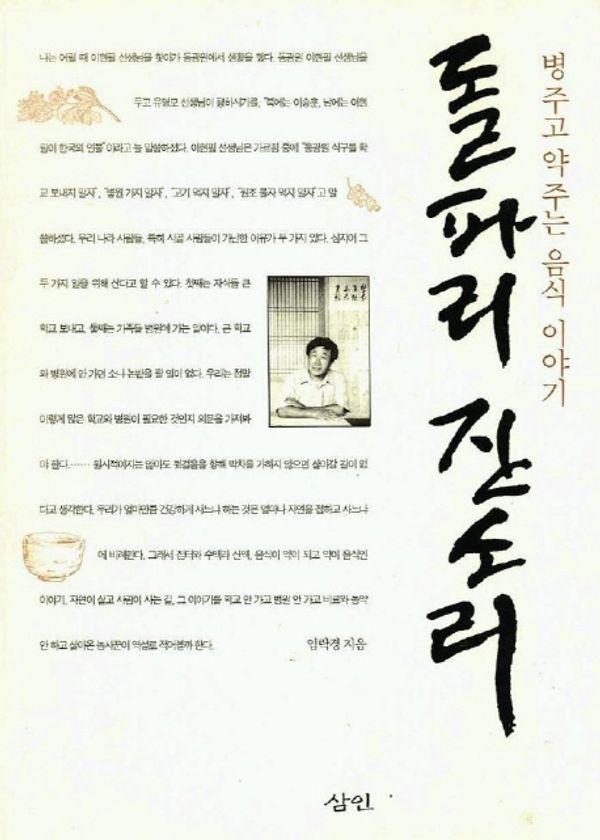 돌파리 잔소리
병 주고 약 주는 음식 이야기
나는 어릴 때 이현필 선생님을 찾아가 동광원에서 생활을 했다. 동광원 이현필 선생님을
두고 유영모 선생님이 평하시기를, “북에는 이승훈, 남에는 이현
필이 한국의 인물”이라고 늘 말씀하셨다. 이현필 선생님은 가르침 중에 “동광원 식구들 학
교 보내지 말자”, “병원 가지 말자”, “고기 먹지 말자”, “원조 물자 먹지 말자”고 말
씀하셨다. 우리 나라 사람들, 특히 시골 사람들이 가난한 이유가 두 가지 있다. 심지어 그
두 가지 일을 위해 산다고 할 수 있다. 첫째는 자식들 큰
학교 보내고, 둘째는 가족들 병원에 가는 일이다. 큰 학교
와 병원에 안 가면 소나 논밭을 팔 일이 없다. 우리는 정말
이렇게 많은 학교와 병원이 필요한 것인지 의문을 가져봐
야 한다.…… 원시적이지는 않아도 뒷걸음을 향해 박차를 가하지 않으면 살아갈 길이 없
다고 생각한다. 우리가 얼마만큼 건강하게 사느냐 하는 것은 얼마나 자연을 접하고 사느냐
에 비례한다. 그래서 집터와 수맥과 산맥, 음식이 약이 되고 약이 음식인
이야기, 자연이 살고 사람이 사는 길, 그 이야기를 학교 안 가고 병원 안 가고 비료와 농약
안 하고 살아온 농사꾼이 역설로 적어볼까 한다.
임락경 지음
삼인